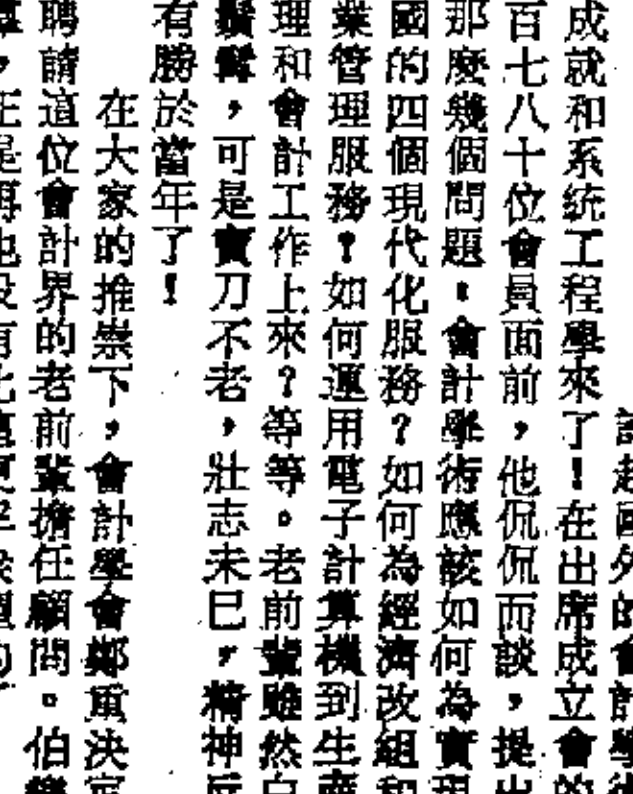 談起國外的會計學術
成就和系統工程學來了！在出席成立會的
百七八十位會員面前，他侃侃而談，提出
那麼幾個問題：會計學術應該如何為實現
國的四個現代化服務？如何為經濟改組和
業管理服務？如何運用電子計算機到生產
理和會計工作上來？等等。老前輩雖然白
鬚鬢，可是寶刀不老，壯志未已，精神反
有勝於當年了！
在大家的推崇下，會計學會鄭重決定
聘請這位會計界的老前輩擔任顧問。伯樂